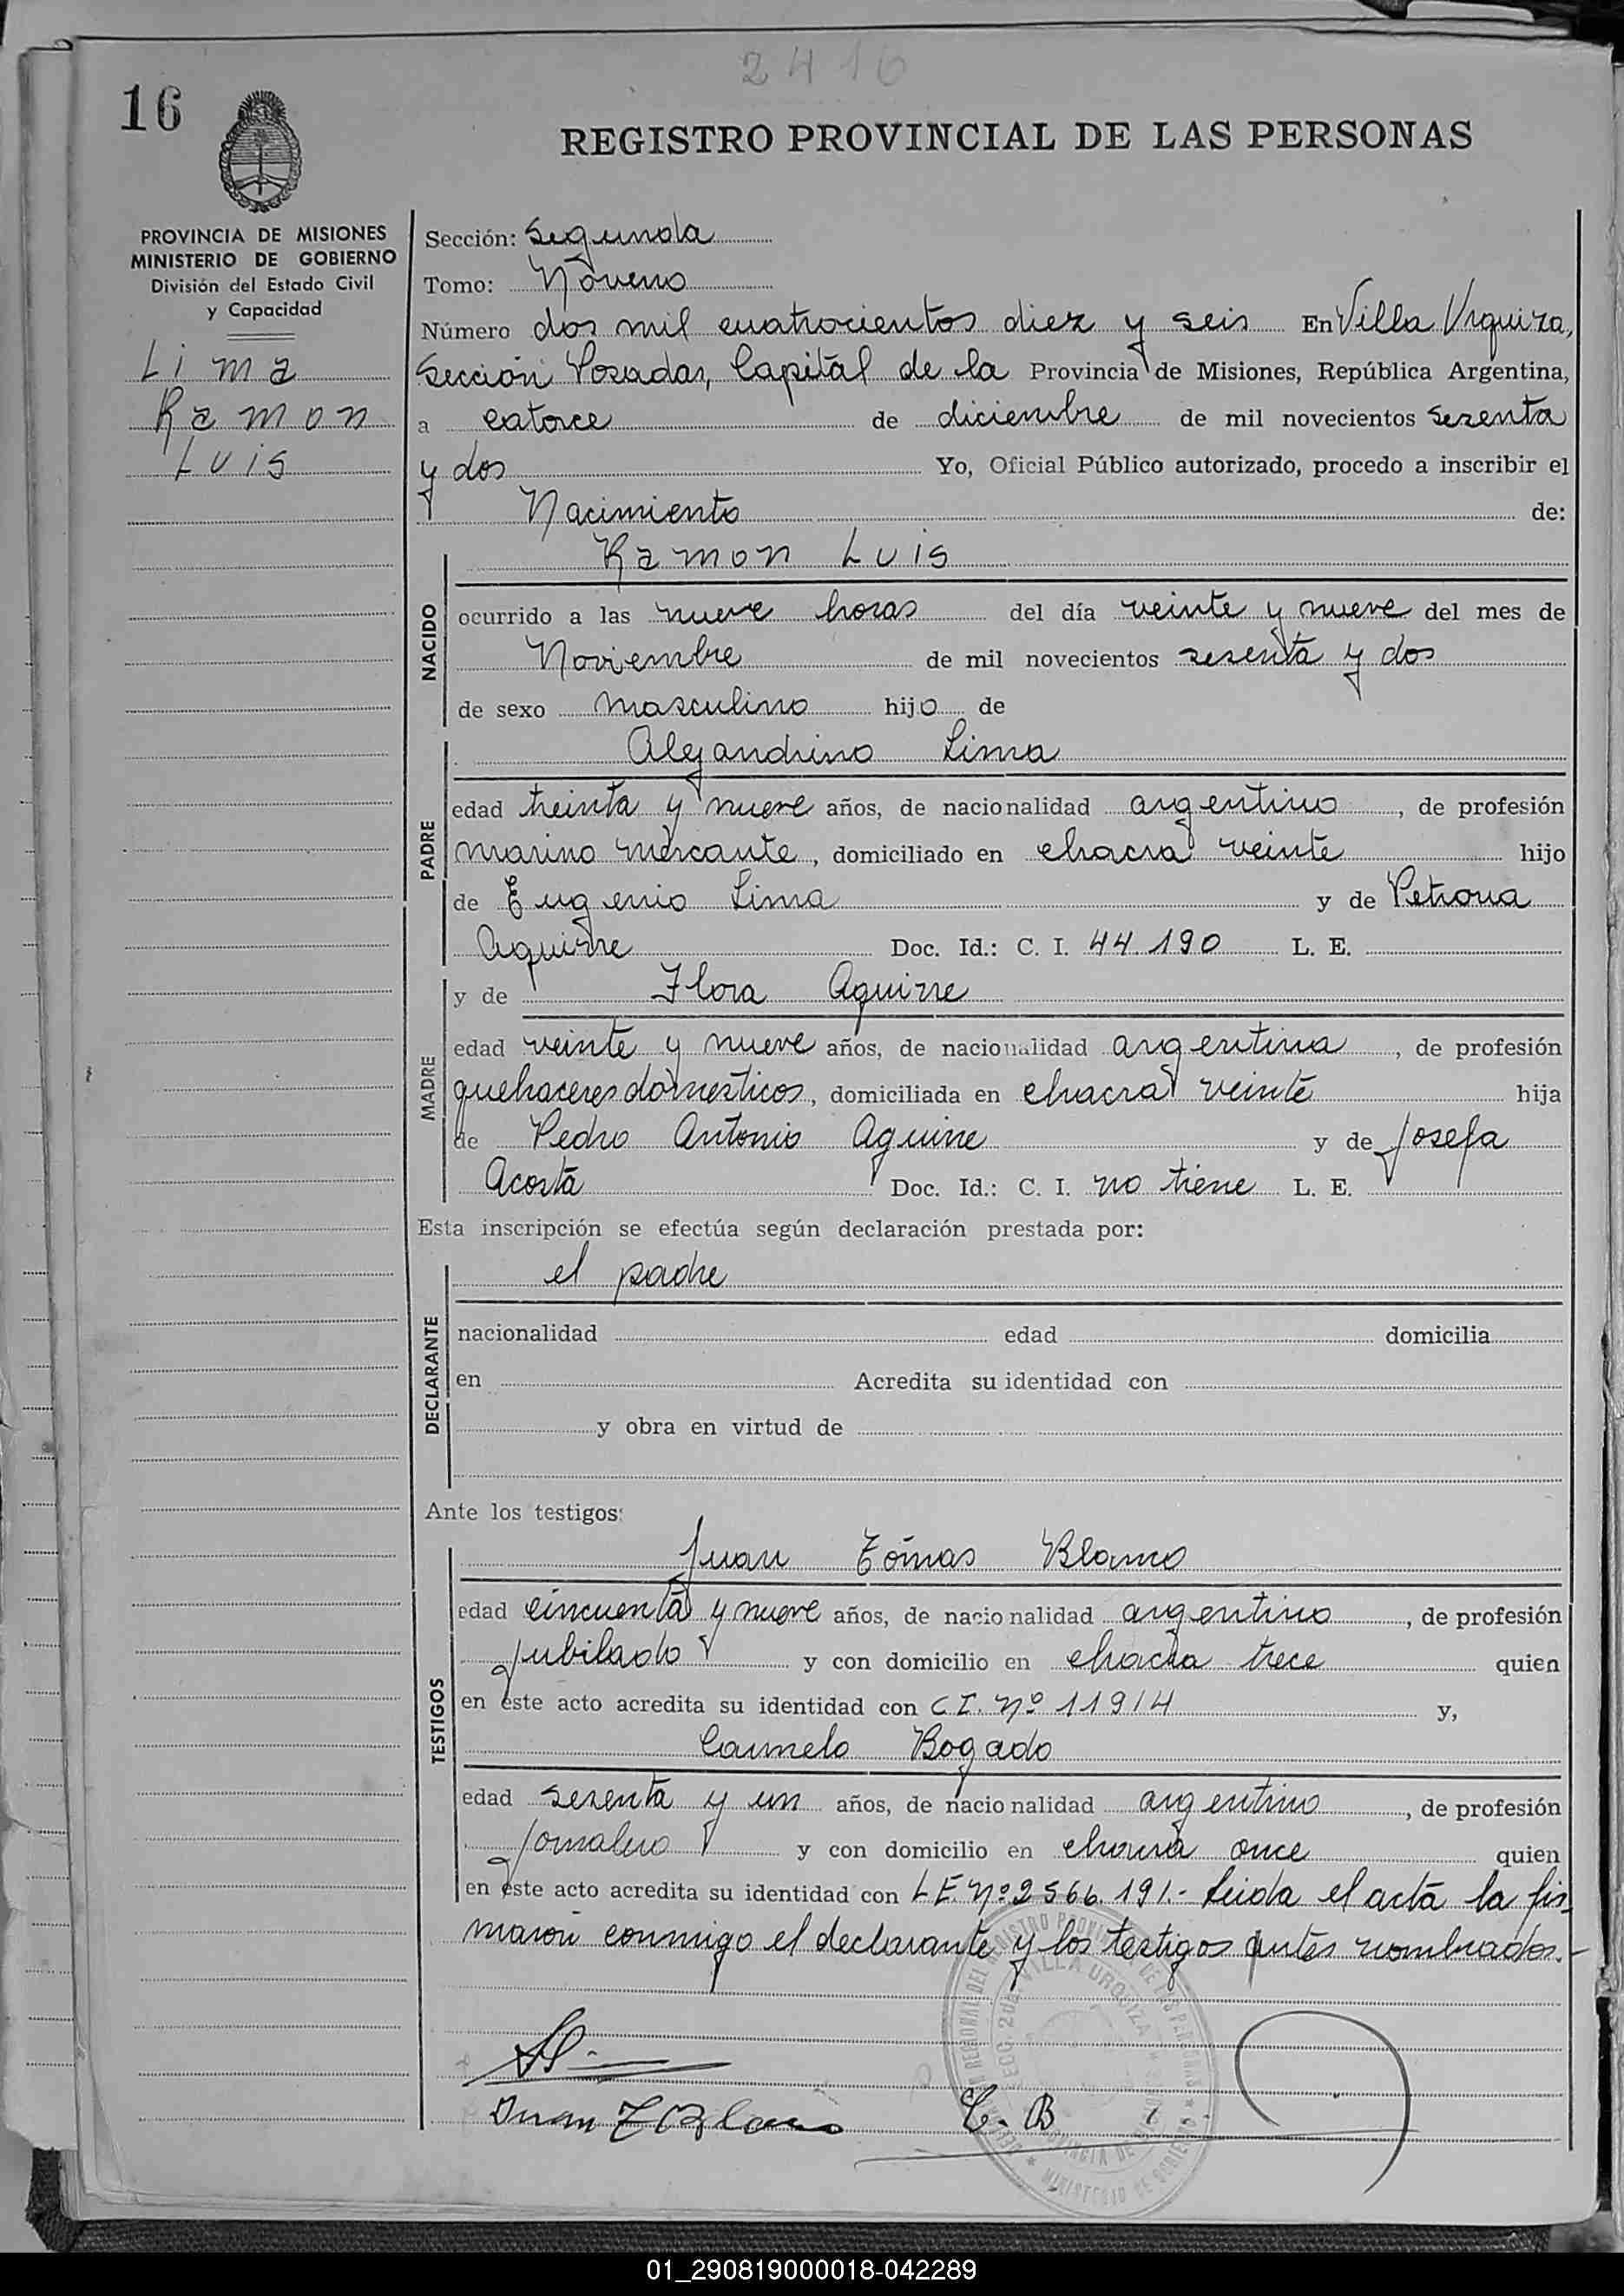 2416
16
REGISTRO PROVINCIAL DE LAS PERSONAS
PROVINCIA DE MISIONES
MINISTERIO DE GOBIERNO
División del Estado Civil
y Capacidad
Lima
Ramon
Luis
Sección: Segunda
Tomo: Noveno
Número dos mil cuatrocientos diez y seis En Villa Urquiza,
Sección Posadas, Capital de la Provincia de Misiones, República Argentina,
a catorce de diciembre de mil novecientos sesenta
y dos Yo, Oficial Público autorizado, procedo a inscribir el
Nacimiento de:
Ramon Luis
NACIDO
ocurrido a las nueve horas del día veinte y nueve del mes de
Noviembre de mil novecientos sesenta y dos
de sexo masculino hijo de
Alejandrino Lima
PADRE
edad treinta y nueve años, de nacionalidad argentino, de profesión
marino mercante, domiciliado en chacra veinte hijo
de Eugenio Lima y de Petrona
Aguirre Doc. Id.: C. I. 44.190 L. E.
y de Flora Aguirre
MADRE
edad veinte y nueve años, de nacionalidad argentina, de profesión
quehaceres domesticos, domiciliada en chacra veinte hija
de Pedro Antonio Aguirre y de Josefa
Acosta Doc. Id.: C. I. no tiene L. E.
Esta inscripción se efectúa según declaración prestada por:
el padre
DECLARANTE
nacionalidad edad domicilia
en Acredita su identidad con
y obra en virtud de
Ante los testigos:
Juan Tómas Blanco
TESTIGOS
edad cincuenta y nueve años, de nacionalidad argentino, de profesión
jubilado y con domicilio en chacra trece quien
en este acto acredita su identidad con C I. Nº 11914 y,
Carmelo Bogado
edad sesenta y un años, de nacionalidad argentino, de profesión
jornalero y con domicilio en chacra once quien
en este acto acredita su identidad con L E. Nº 2566.191.- Leida el acta la fir-
maron conmigo el declarante y los testigos antes nombrados.-
Juan T Blanco C. B
SECC. 2da. VILLA URQUIZA
MINISTERIO DE GOBIERNO
01_290819000018-042289